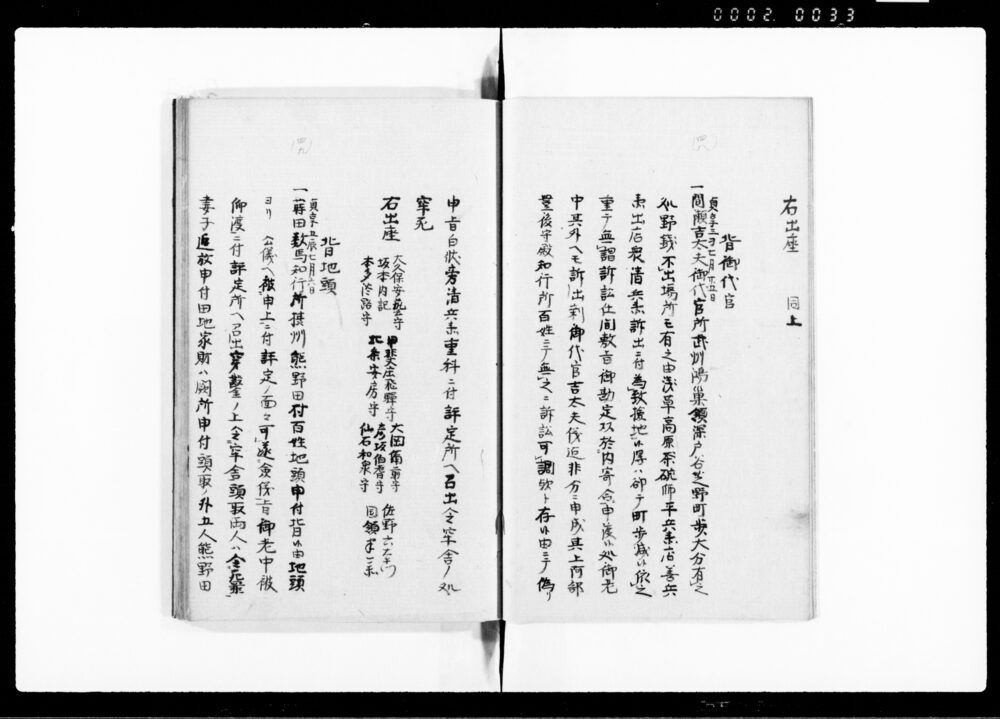 0002 0033
(四八)
右出座 同上
背御代官
貞享三寅七月廿五日
一間瀬吉大夫御代官所武州鴻巣領深戸谷芝野町歩大分有之
外野銭不出場所モ有之由浅草高原茶碗師平兵衛店善兵
衛出店衆清兵衛訴出ニ付為致検地候得ハ却テ町歩減候依之
重テ無謂訴訟仕間敷旨御勘定以於内寄合申渡候処御老
中其外ヘモ訴出剰御代官吉太夫儀迄非分ニ申成其上阿部
豊後守殿知行所百姓ニテ無之ニ訴訟可調歟ト存候由ニテ偽リ
(四九)
申旨白状旁清兵衛重科ニ付評定所ヘ召出令牢舎ノ処
牢死
右出座 大久保安芸守 甲斐庄飛騨守 大岡備前守 佐野六右衛門
坂本内記 北条安房守 彦坂伯耆守 国領半兵衛
本多淡路守 仙石和泉守
背地頭
貞享五辰七月六日
一蒔田数馬知行所摂州熊野田村百姓地頭申付背候由地頭
ヨリ 公儀ヘ被申上ニ付評定ノ面々可遂僉儀旨御老中被
仰渡ニ付評定所ヘ召出穿鑿ノ上令牢舎頭取両人ハ令死罪
妻子追放申付田地家財ハ闕所申付頭取ノ外五人熊野田